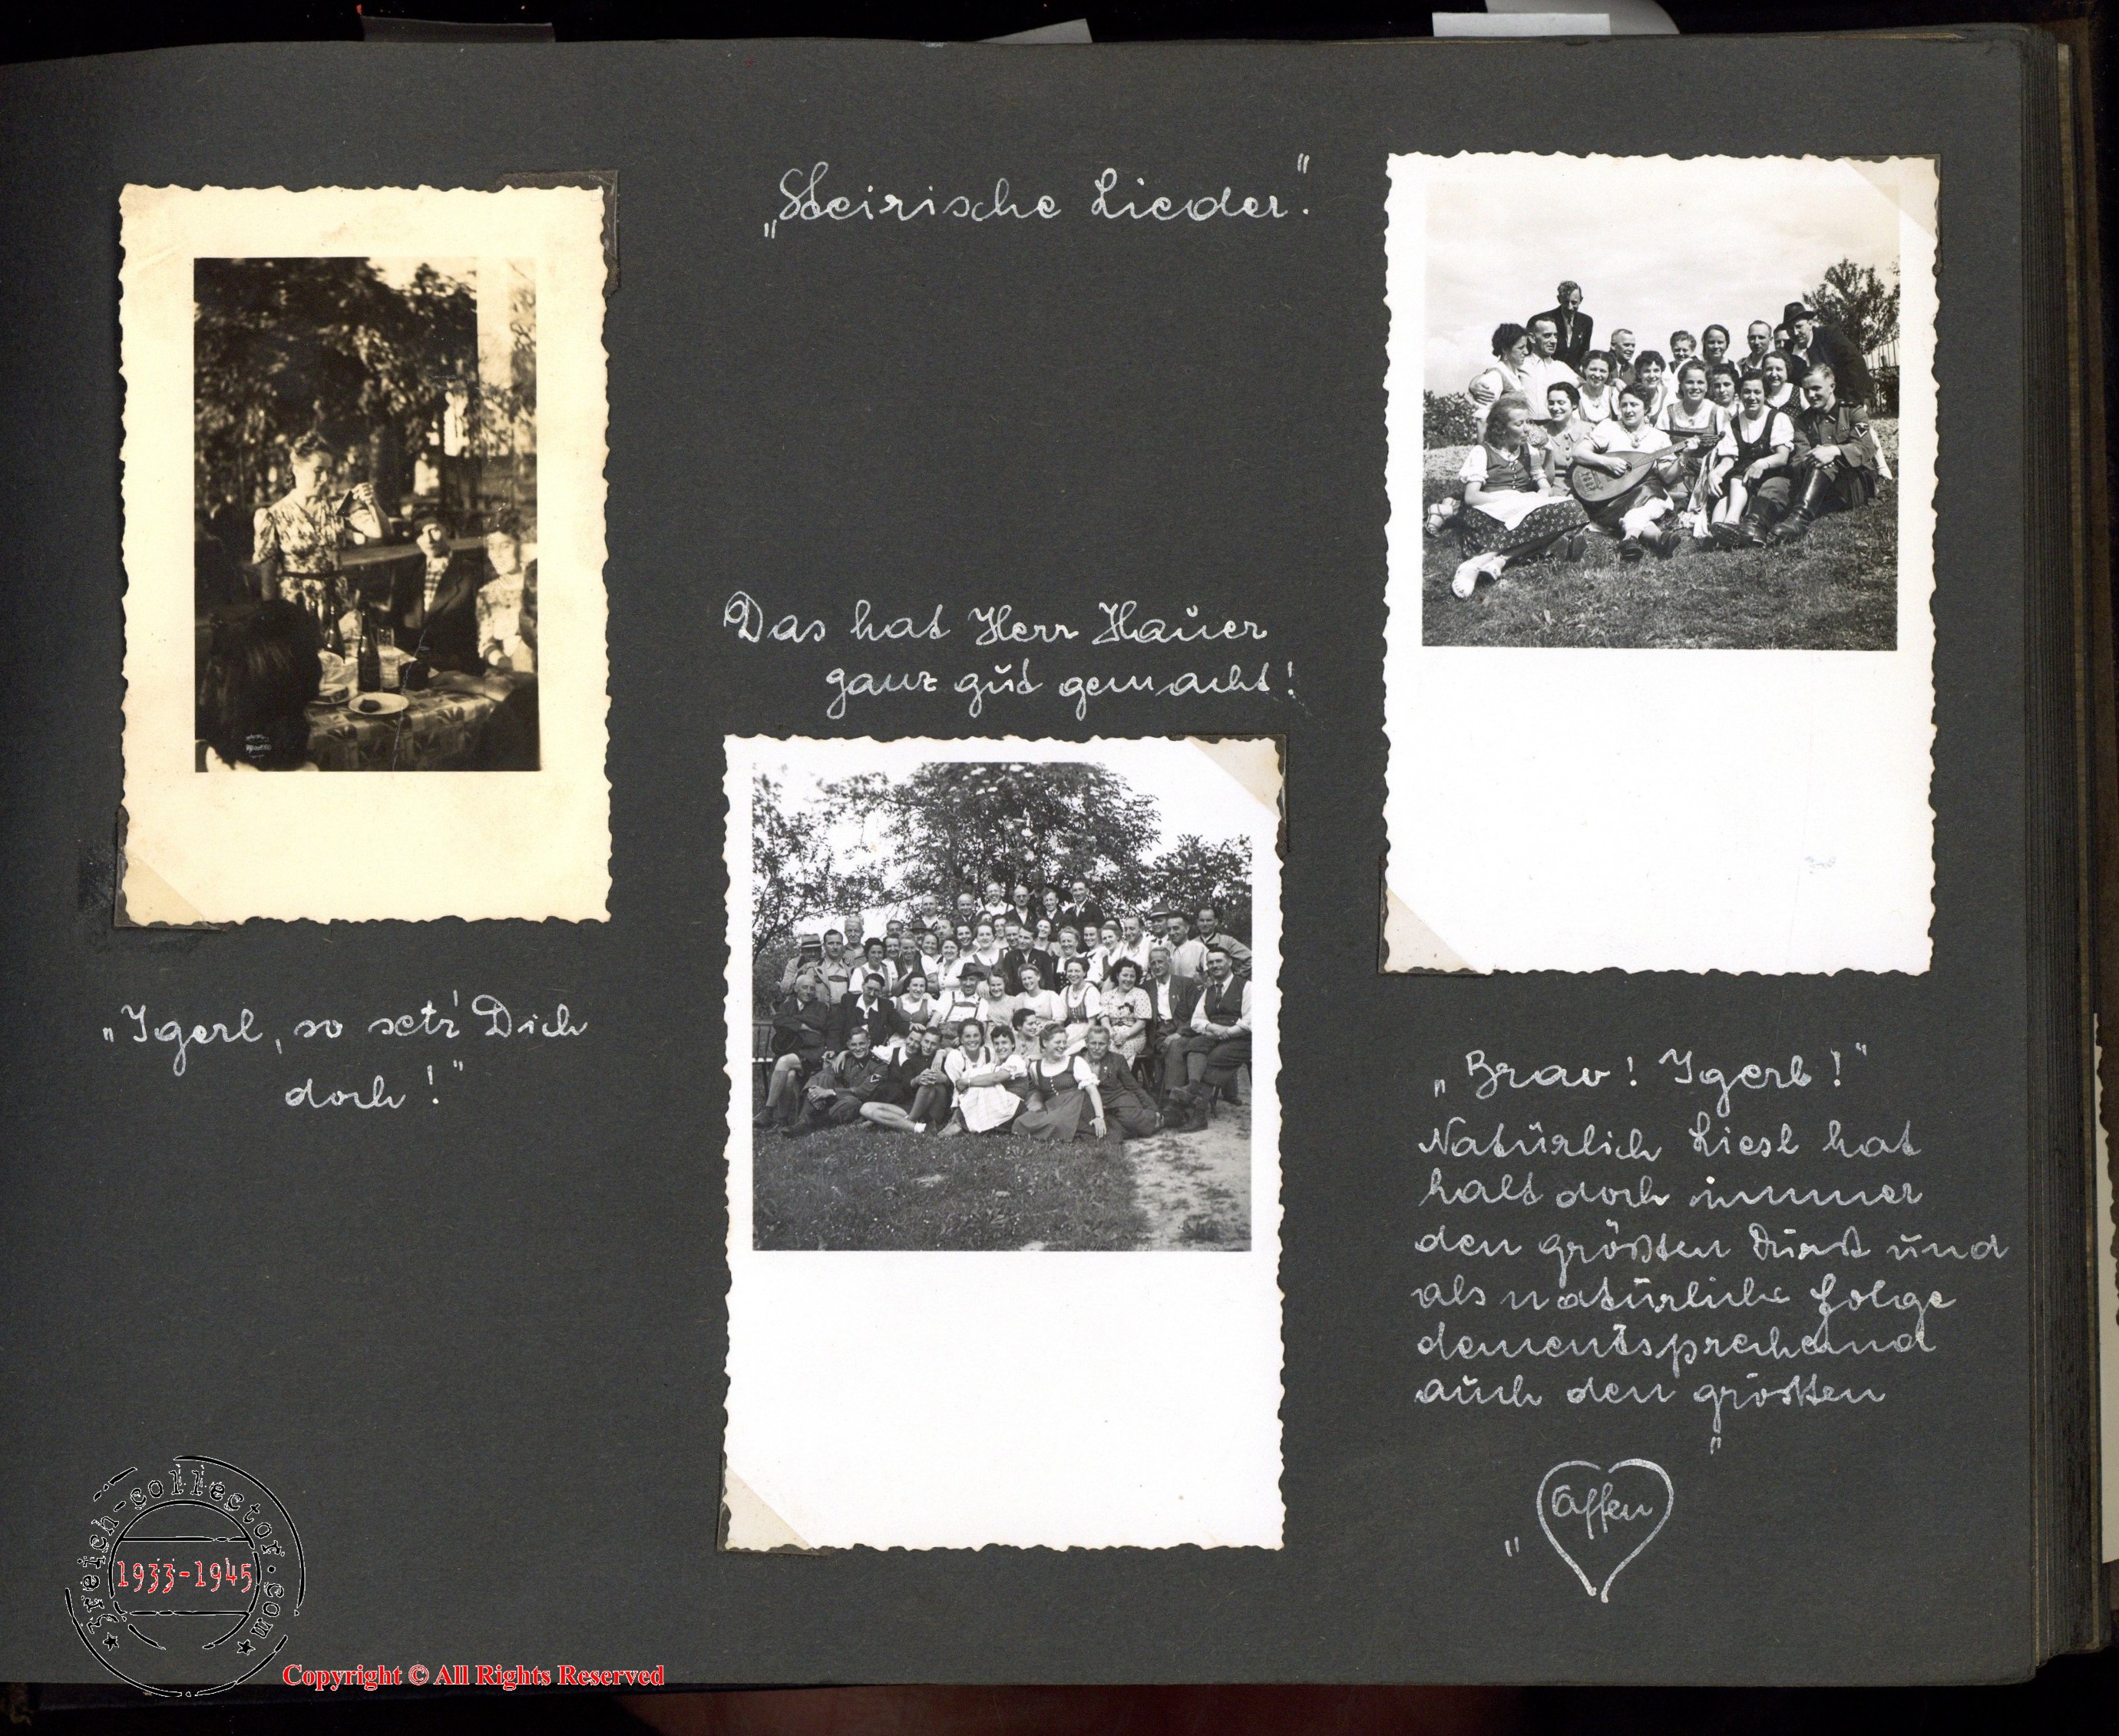 „Steirische Lieder."
Das hat Herr Hauer
ganz gut gemacht!
„Igerl, so setz' Dich
doch!"
„Brav! Igerl!"
Natürlich Liesl hat
halt doch immer
den größten Durst und
als natürliche Folge
dementsprechend
auch den größten
„Affen"
3reich-collector.com
1933-1945
Copyright © All Rights Reserved